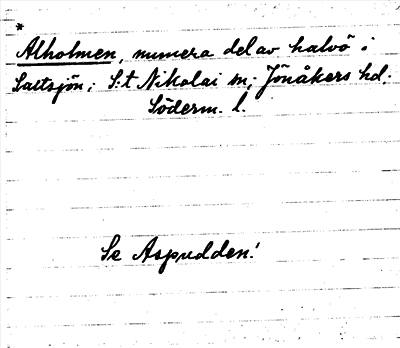 *
Alholmen, numera del av halvö i
Saltsjön; S:t Nikolai sn; Jönåkers hd;
Söderm. l.
Se Aspudden!